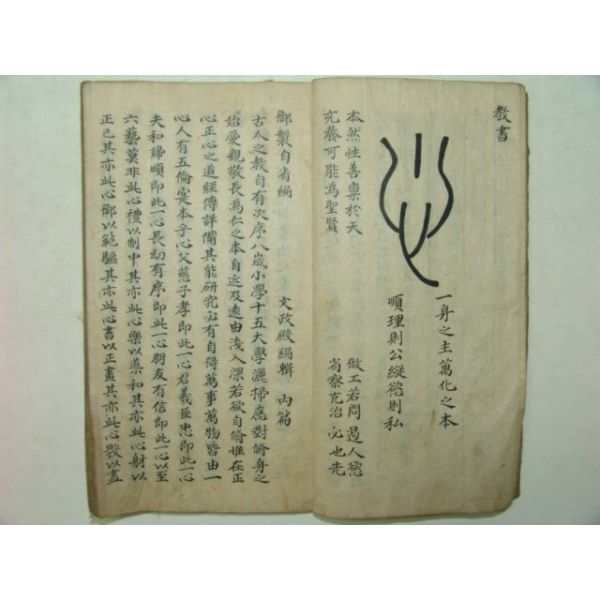 教書
心
一身之主萬化之本
順理則公縱慾則私
本然性善稟於天
充養可能為聖賢
做工若問過人慾
省察克治必也先
御製自省編
文政殿編輯
內篇
古人之教自有次序八歲小學十五大學灑掃應對脩身之
始愛親敬長為仁之本自近及遠由淺入深若欲自脩惟在正
心正心之道經傳詳備其能研究必有自得萬事萬物皆由一
心人有五倫寔本乎心父慈子孝即此一心君義臣忠即此一心
夫和婦順即此一心長幼有序即此一心朋友有信即此一心以至
六藝莫非此心禮以制中其亦此心樂以導和其亦此心射以
正己其亦此心御以範驅其亦此心書以正畫其亦此心數以盡